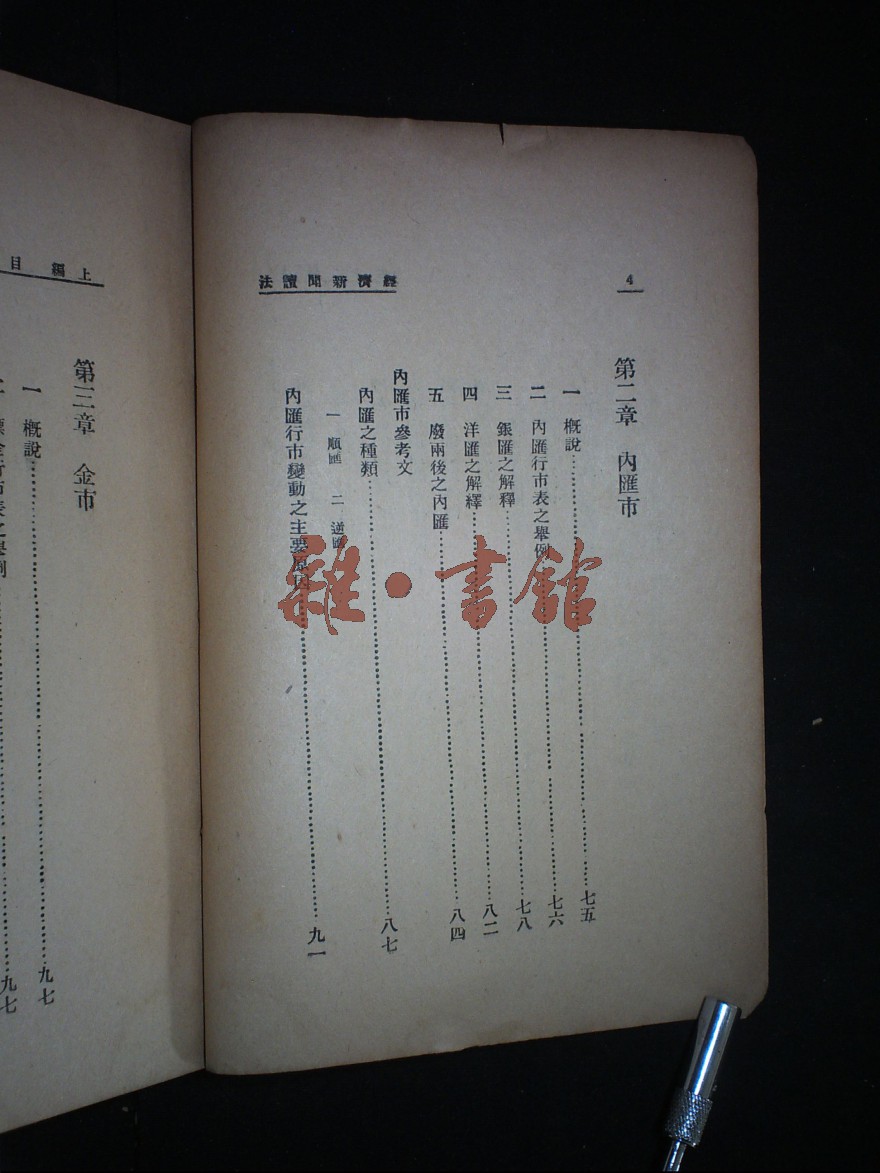 4
經濟新聞讀法
第二章 內匯市
一 概說……七五
二 內匯行市表之舉例……七六
三 銀匯之解釋……七八
四 洋匯之解釋……八二
五 廢兩後之內匯……八四
內匯市參考文
內匯之種類……八七
一 順匯 二 逆匯
內匯行市變動之主要原因……九一
上編 目
第三章 金市
一 概說……九七
二 標金行市表之舉例……九七
雜·書館